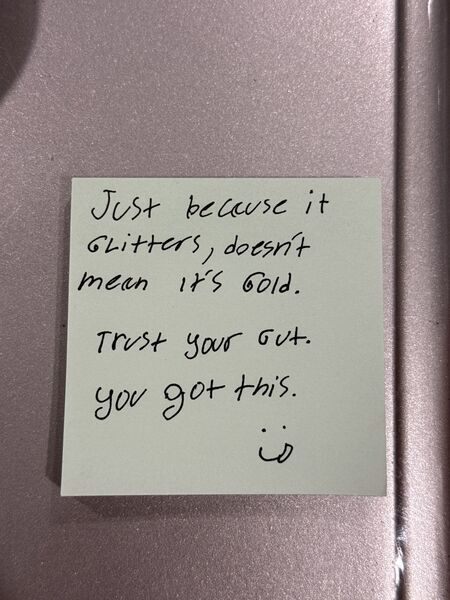 Just because it
Glitters, doesn't
mean it's Gold.
Trust your Gut.
you got this.